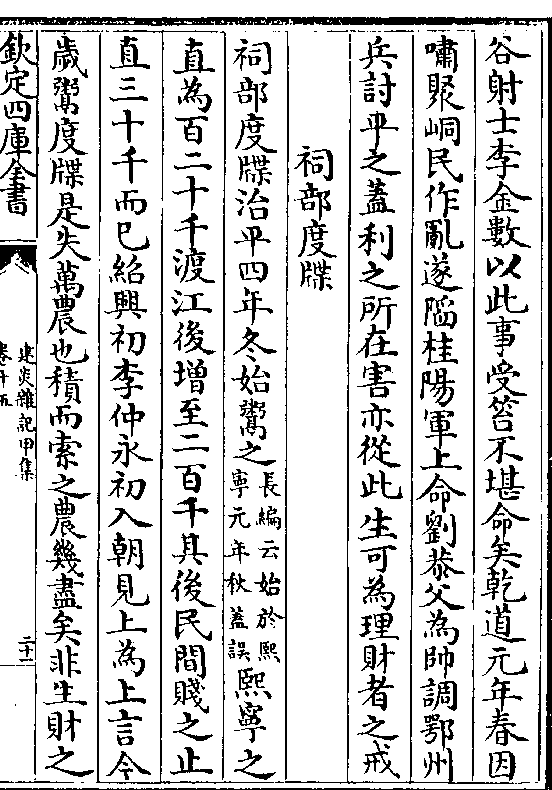 谷射士李金數以此事受笞不堪命矣乾道元年春因
嘯聚峒民作亂遂陷桂陽軍上命劉恭父為帥調鄂州
兵討平之蓋利之所在害亦從此生可為理財者之戒
祠部度牒
祠部度牒治平四年冬始鬻之長編云始於熙寧元年秋蓋誤熙寧之
直為百二十千渡江後增至二百千其後民間賤之止
直三十千而已紹興初李仲永初入朝見上為上言今
歲鬻度牒是失萬農也積而索之農幾盡矣非生財之
欽定四庫全書
建炎雜記甲集
卷十五
二十一